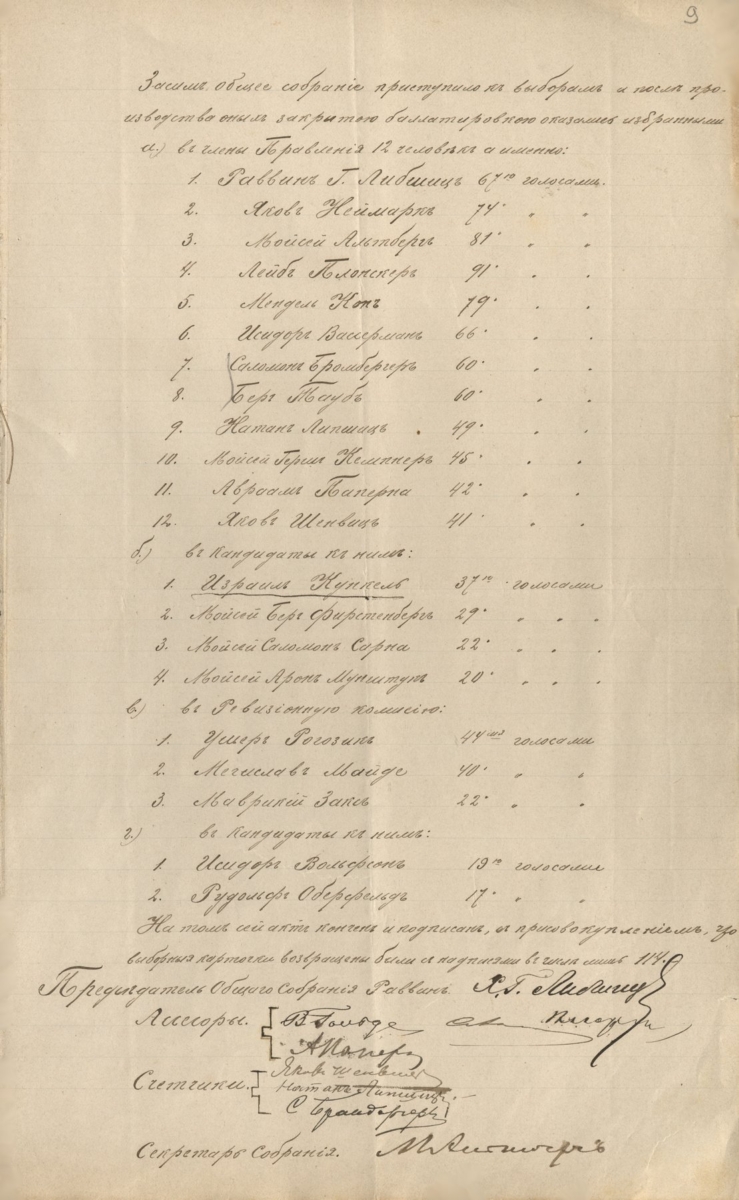 9
Засимъ общее собраніе приступило къ выборамъ и послѣ про-
изводства оныхъ закрытою баллатировкою оказались избранными
а.) въ члены Правленія 12 человѣкъ а именно:
1. Раввинъ Г. Либшицъ 67ю голосами.
2. Яковъ Неймаркъ 74 " "
3. Мойсей Альтбергъ 81 " "
4. Лейбъ Плонскеръ 91 " "
5. Мендель Конъ 79 " "
6. Исидоръ Вассерманъ 66 " "
7. Саломонъ Бромбергеръ 60 " "
8. Беръ Таубъ 60 " "
9. Натанъ Липшицъ 49 " "
10. Мойсей Гершъ Кемпнеръ 45 " "
11. Авраамъ Паперна 42 " "
12. Яковъ Шенвицъ 41 " "
б.) въ кандидаты къ нимъ:
1. Израиль Кункель 37ю голосами
2. Мойсей Беръ Фирстенбергъ 29 " " "
3. Мойсей Саломонъ Сарна 22 " " "
4. Мойсей Аронъ Мунштукъ 20 " " "
в.) въ Ревизіонную комисію:
1. Ушеръ Рогозикъ 44мя голосами
2. Мечиславъ Майде 40 " "
3. Маврикій Заксъ 22 " "
г.) въ кандидаты къ нимъ:
1. Исидоръ Вольфсонъ 19ю голосами
2. Рудольфъ Оберфельдъ 17 " "
На томъ сей актъ конченъ и подписанъ, съ присовокупленіемъ, что
выборныя карточки возвращены были съ надписями въ числѣ лишь 114.
Предсѣдатель Общаго Собранія Раввинъ Х. Г. Либшицъ
Ассесоры. В Гольде
А Паперна
Счетчики. Яковъ Шенвицъ
Натанъ Липшицъ
С Бромбергеръ
Секретарь Собранія. М Альтбергъ